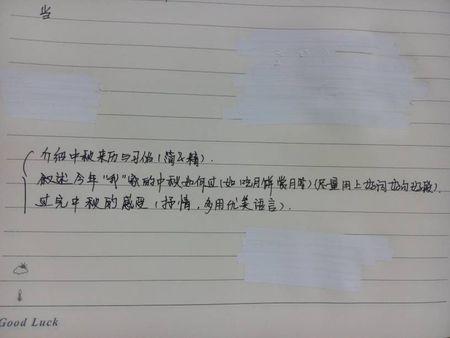 当
介绍中秋来历与习俗(简&精).
叙述今年“我”家的中秋如何过(如吃月饼赏月等)(尽量用上好词好句好段).
过完中秋的感受(抒情,多用优美语言).
Good Luck